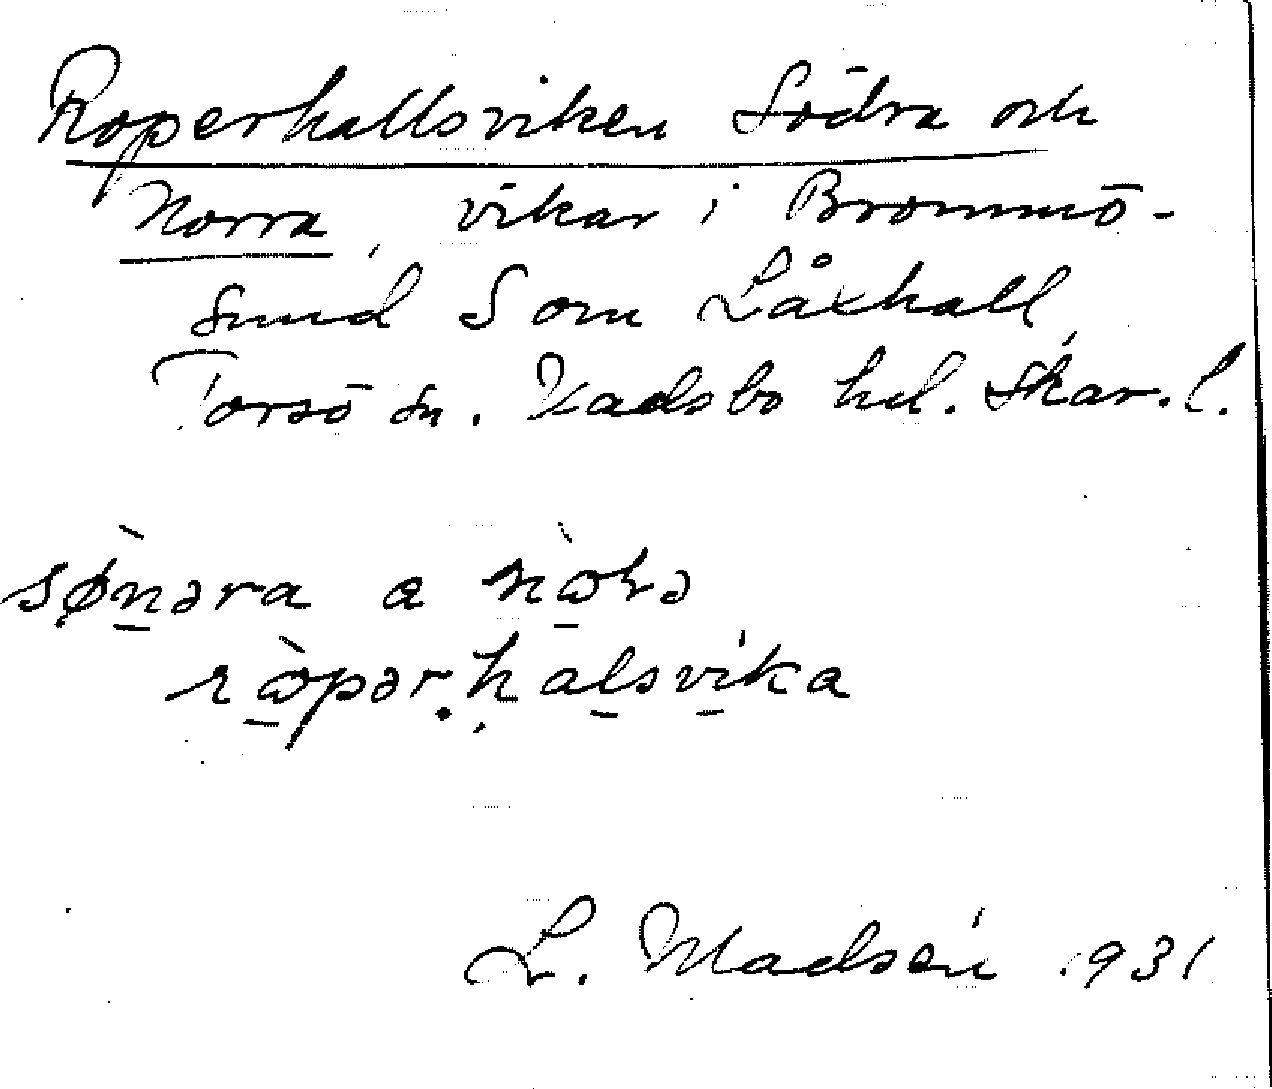 Roperhallsviken Södra och
Norra, vikar i Brommö-
sund S om Låxhall,
Torsö sn. Vadsbo hd. Skar. l.
sø̀nəra a nɷ̀rə
rɷ̀pər.halsvika
L. Madsén 1931